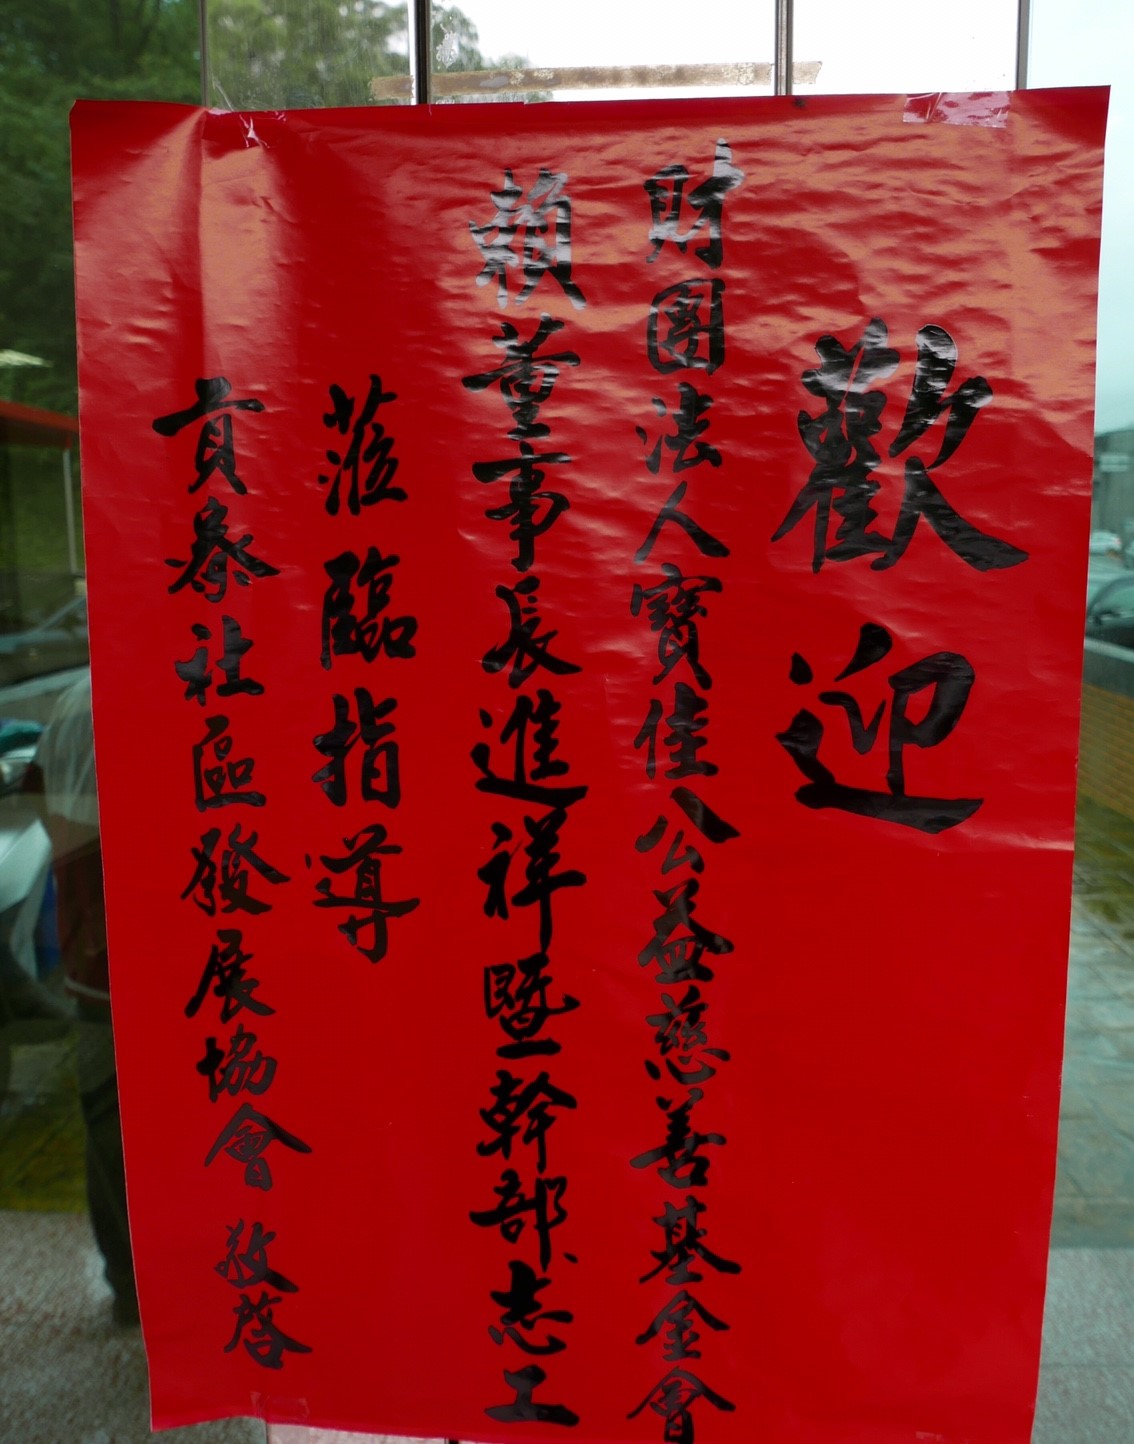 歡迎
財團法人寶佳公益慈善基金會
賴董事長進祥暨幹部、志工
蒞臨指導
貢泰社區發展協會 敬啓